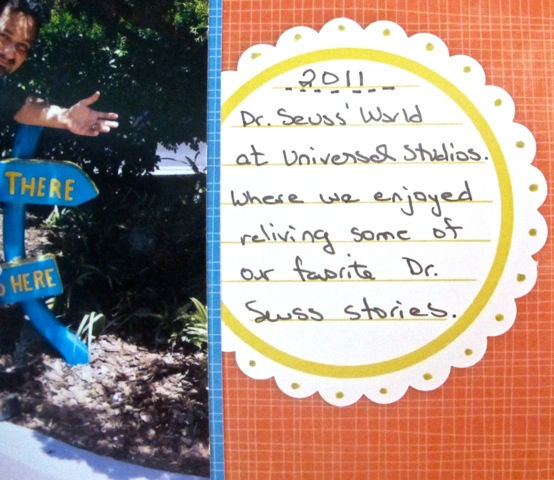 THERE
HERE
2011
Dr. Seuss' World
at Universal Studios.
Where we enjoyed
reliving some of
our favorite Dr.
Seuss stories.